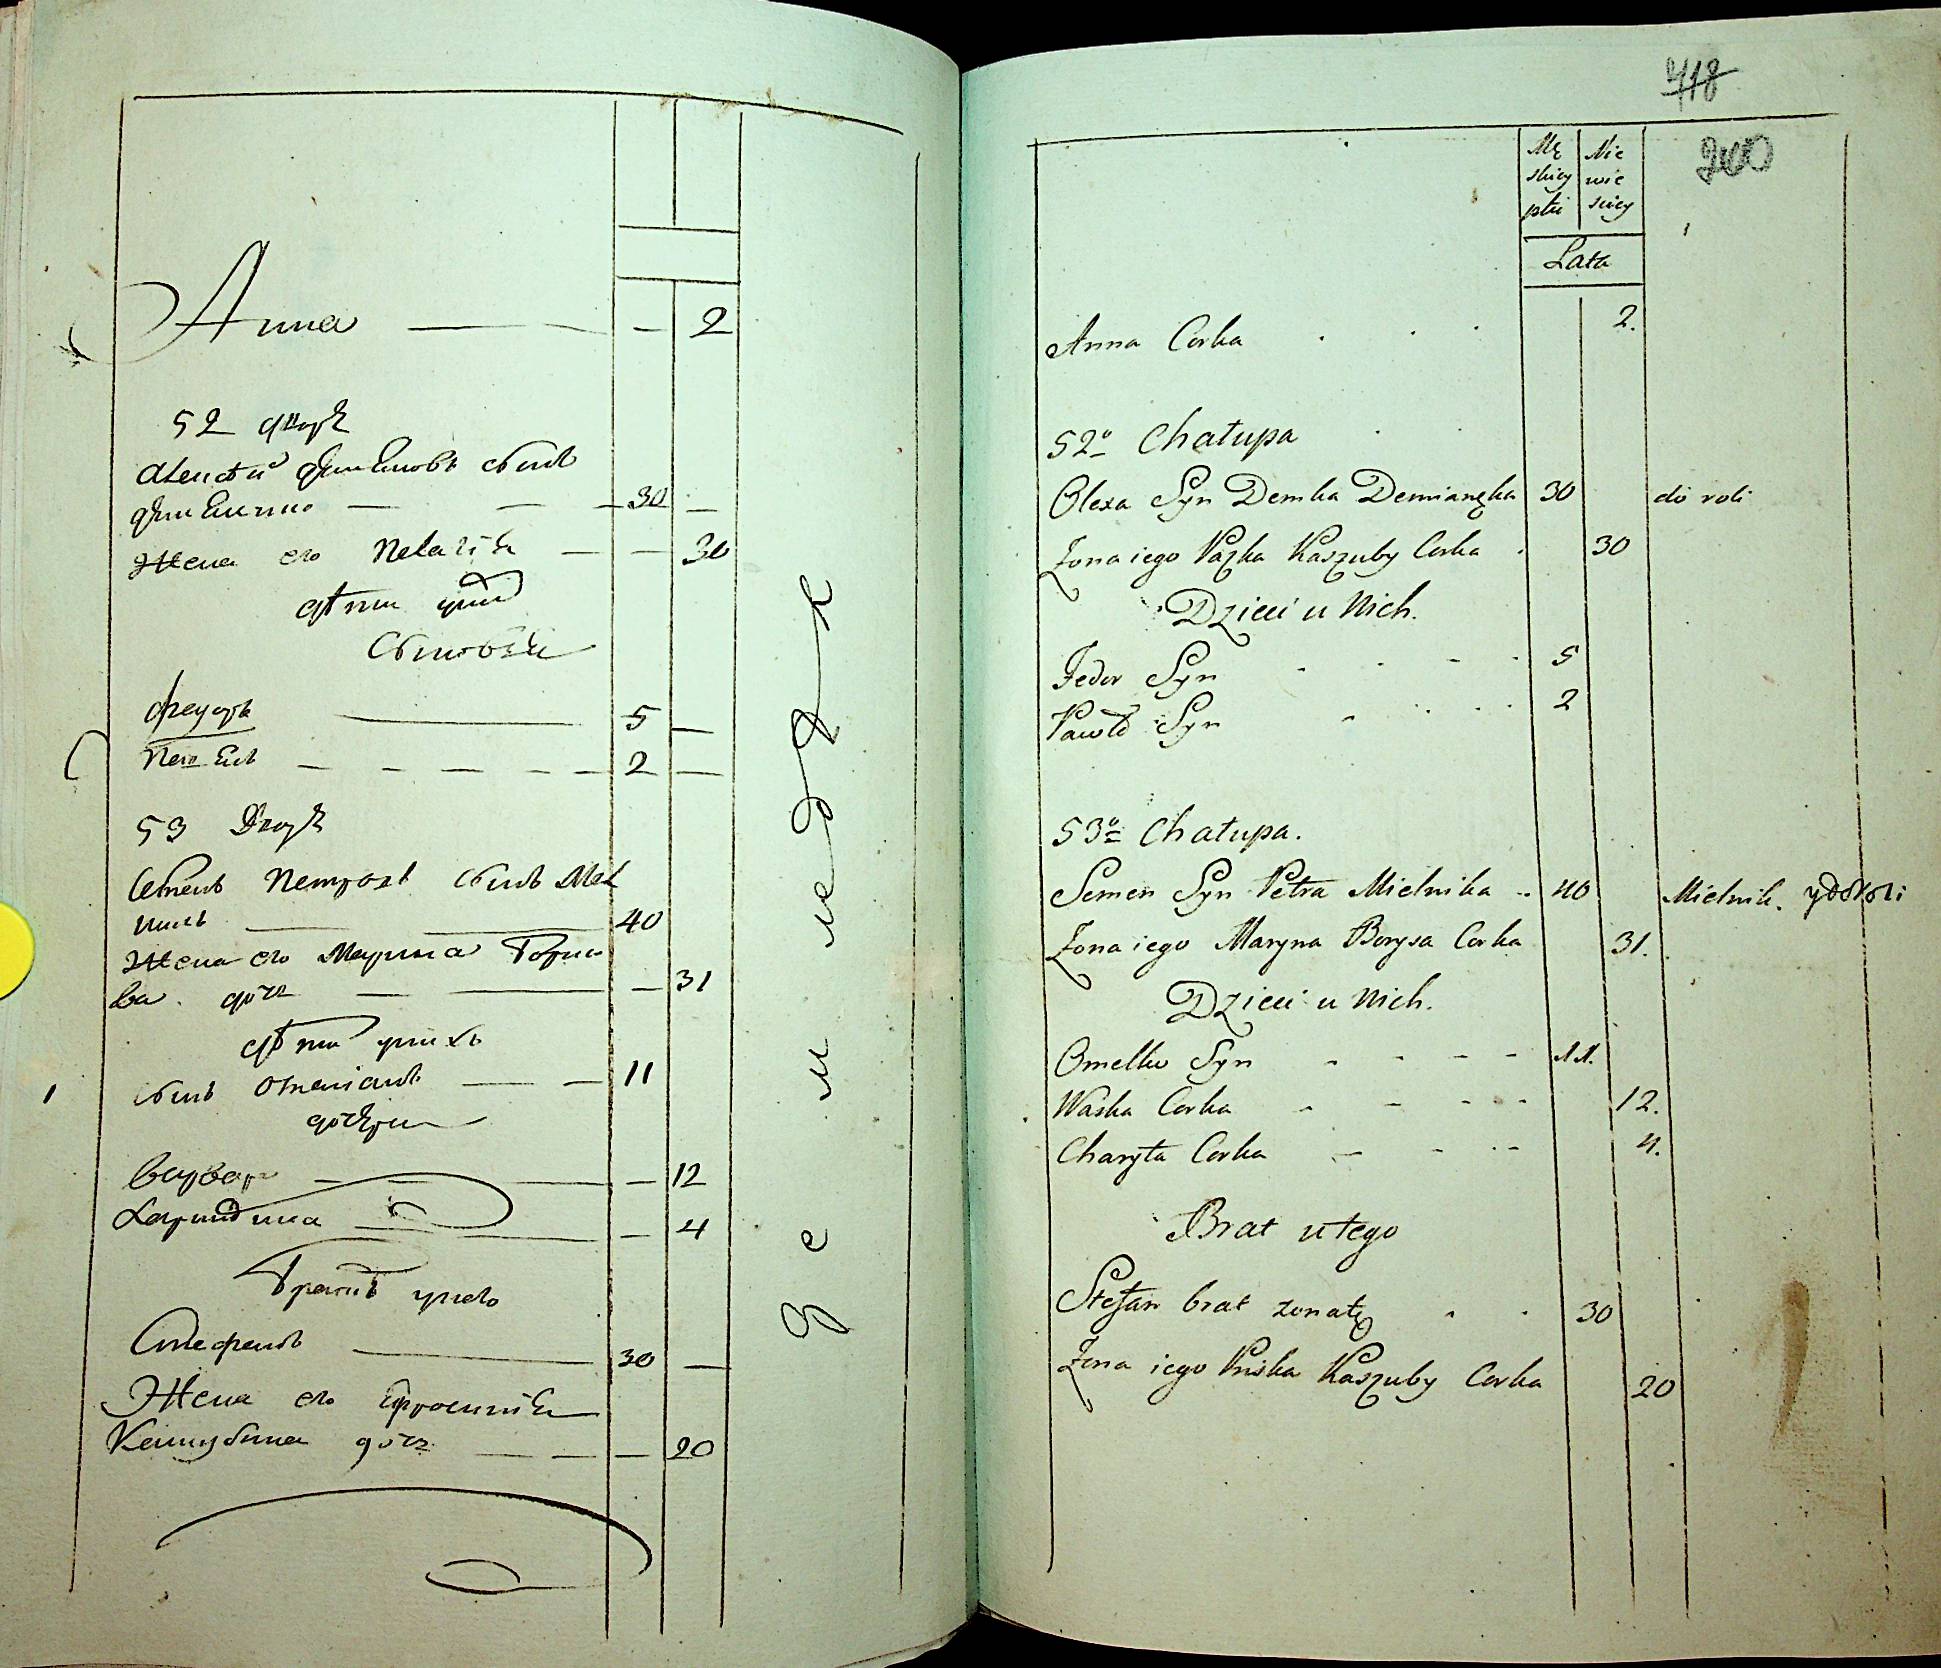 Анна — — — 2
52 дворъ
Алексѣй Дем
30 —
Жена его Пелагія — — 30
дѣти
Сыновья
Феодоръ — 5 —
Павелъ — — — — — 2 —
53 Дворъ
Семенъ Петровъ сынъ Мел
никъ — 40
Жена его Марина Бори
ва дочь — — — 31
дѣти у нихъ
сынъ Омеліанъ — — 11
дочери
Варвара — — — 12
Харитина — — — 4
Братъ у него
Стефанъ — 30 —
Жена его Ефросинія
Кашубина дочь — — — 20
земледѣл
418
200
Mę Nie
skiey wie
płci sciey
Lata
Anna Corka . . . 2.
52º Chałupa
Olexa Syn Demka Demianęka 30 do roli
Zona iego Pazka Kaszuby Corka . 30
Dzieci u Nich.
Fedor Syn - - - - 5
Pawło Syn - . . . . 2
53º Chałupa.
Semen Syn Petra Mielnika .. 40 Mielnik. y do roli
Zona iego Maryna Borysa Corka 31.
Dzieci u Nich.
Omelko Syn - - - - 11.
Waska Corka - - - - 12.
Charyta Corka - - - - 4.
Brat u tego
Stefan brat zonaty . . 30
Zona iego Priska Kaszuby Corka 20